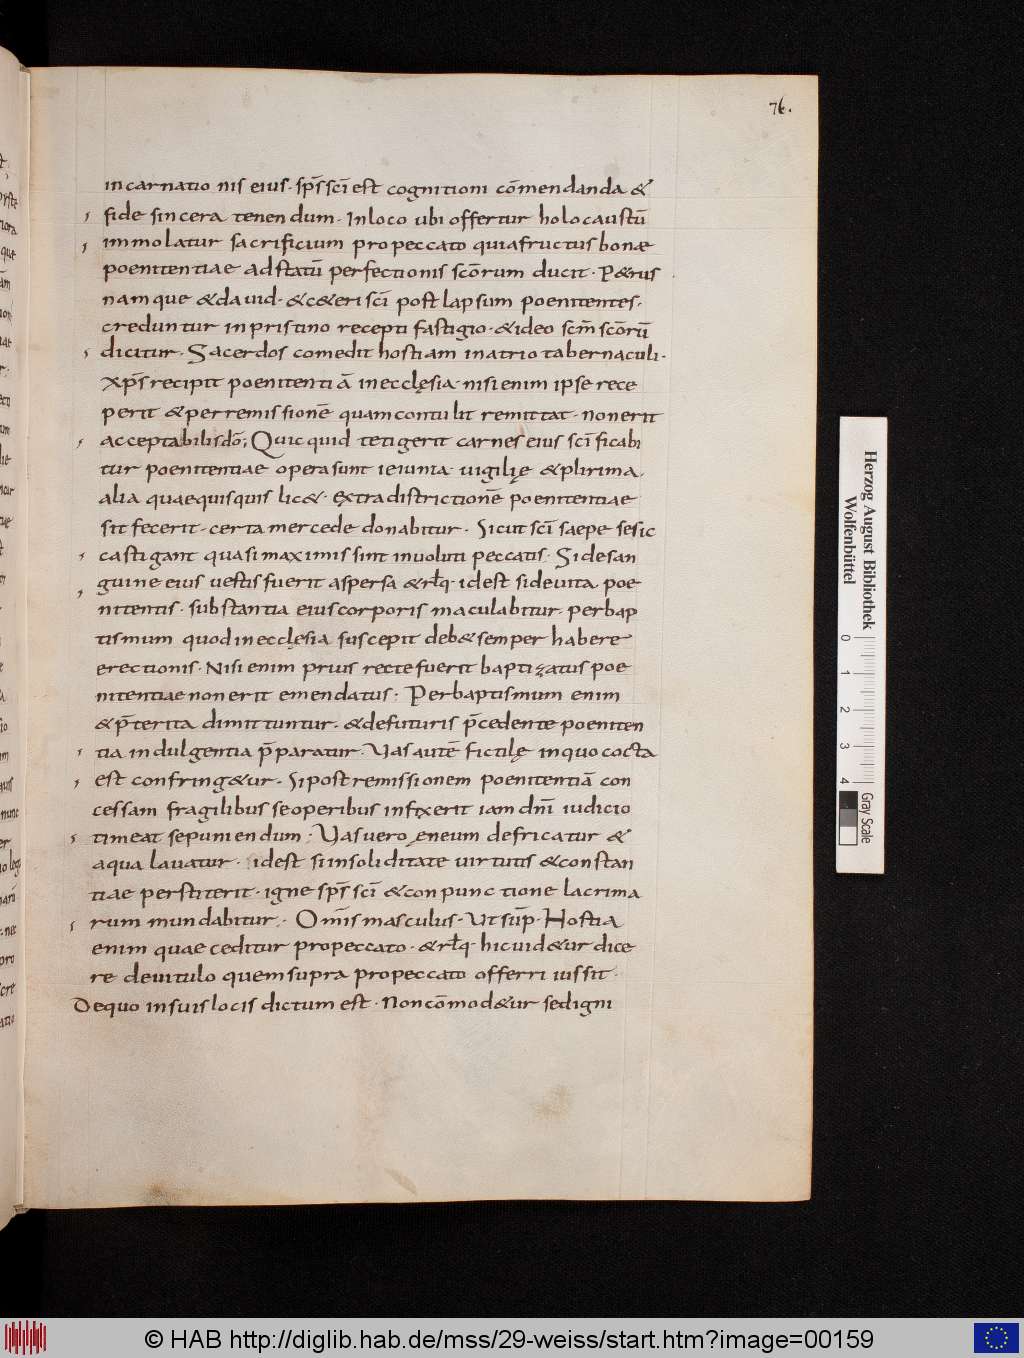 76.
incarnatio nis eius· sp̄s sc̄i est cognitioni cōmendanda &
fide sincera tenendum· Inloco ubi offertur holocaustū
immolatur sacrificium propeccato quiafructus bonae
poenitentiae adstatū perfectionis scōrum ducit· P&rus
namque &dauid· &c&eri sc̄i post lapsum poenitentes·
creduntur inpristino recepti fastigio· &ideo scm̄ scōrū
dicitur· Sacerdos comedit hostiam inatrio tabernaculi·
xp̄s recipit poenitentiā inecclęsia· nisi enim ipse rece
perit &perremissionē quam contulit remittat· non erit
acceptabilis dō; Quicquid tetigerit carnes eius sc̄i ficabi
tur poenitentiae opera sunt ieiunia· uigilię &plurima
alia quaequisquis lic&· extra districtionē poenitentiae
sit fecerit· certa mercede donabitur· Sicut sc̄i saepe sesic
castigant quasi maximis sint inuoluti peccatis· Side san
guine eius uestis fuerit aspersa &rłq· idest sideuita poe
nitentis· substantia eius corporis maculabitur· per bap
tismum quod inecclęsia suscepit deb& semper habere
erectionis· Nisi enim prius recte fuerit baptizatus poe
nitentiae non erit emendatus· Per baptismum enim
&p̄terita dimittuntur· &defuturis p̄cedente poeniten
tia indulgentia p̄paratur· Uas autē fictilę inquo cocta
est confring&ur· Si post remissionem poenitentiā con
cessam fragilibus seoperibus infixerit iam dn̄i iudicio
timeat sepuniendum· Uas uero ęneum defricatur &
aqua lauatur· idest siinsoliditate uirtutis &constan
tiae perstiterit· igne sp̄s sc̄i &conpunctione lacrima
rum mundabitur· Om̄is masculus· Ut sup̄· Hostia
enim quae ceditur propeccato· &rłq· hic uid&ur dice
re de uitulo quem supra propeccato offerri iussit·
Dequo insuis locis dictum est· Non cōmod&ur sedigni
Herzog August Bibliothek
Wolfenbüttel
0 1 2 3 4
Gray Scale
© HAB http://diglib.hab.de/mss/29-weiss/start.htm?image=00159